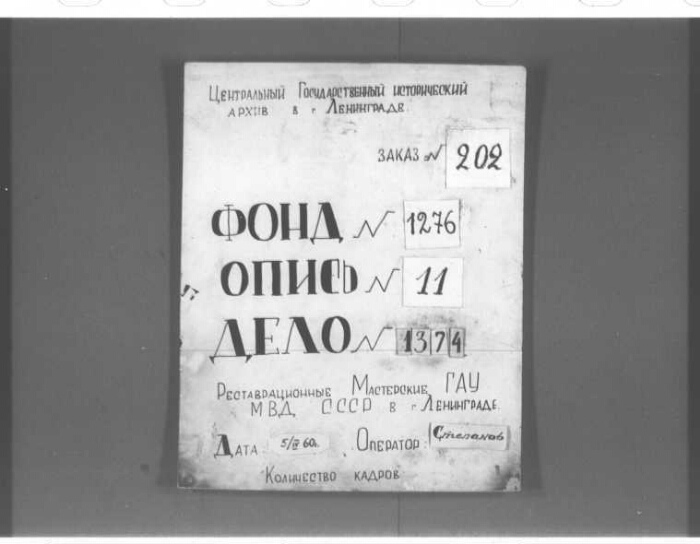 Центральный Государственный исторический
архив в г Ленинграде.
заказ № 202
ФОНД № 1276
ОПИСЬ № 11
ДЕЛО № 1374
Реставрационные Мастерские ГАУ
МВД СССР в г Ленинграде.
Дата: 5/ 60г. Оператор: Степанов
Количество кадров